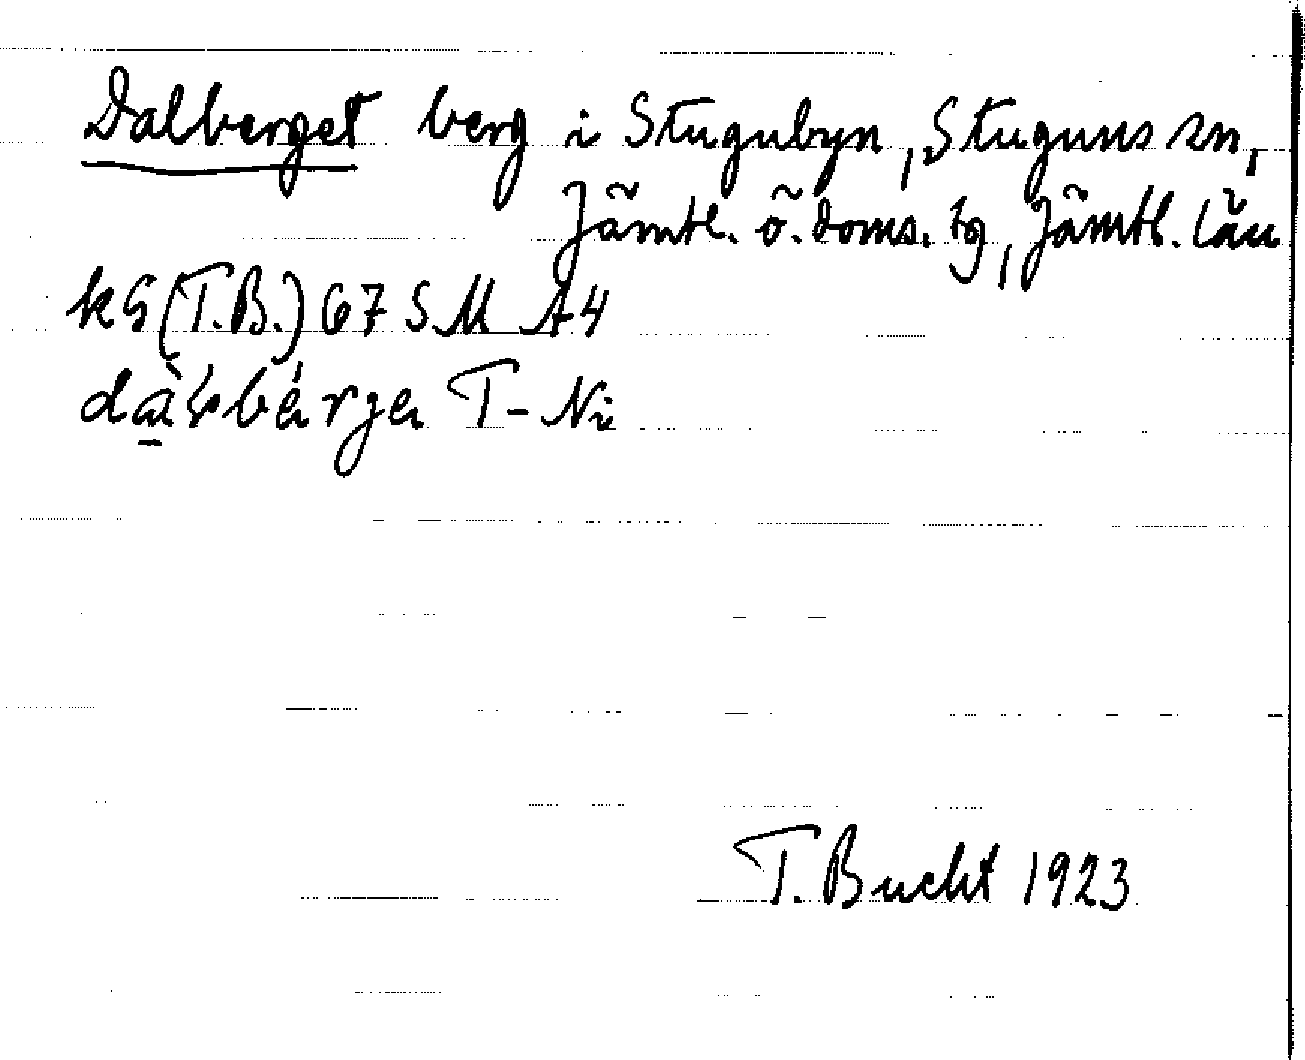 Dalberget berg i Stugubyn, Stuguns sn,
Jämtl. ö. doms. tg, Jämtl. län
kG (T.B.) 67 S M A4
T-Ni
T. Bucht 1923